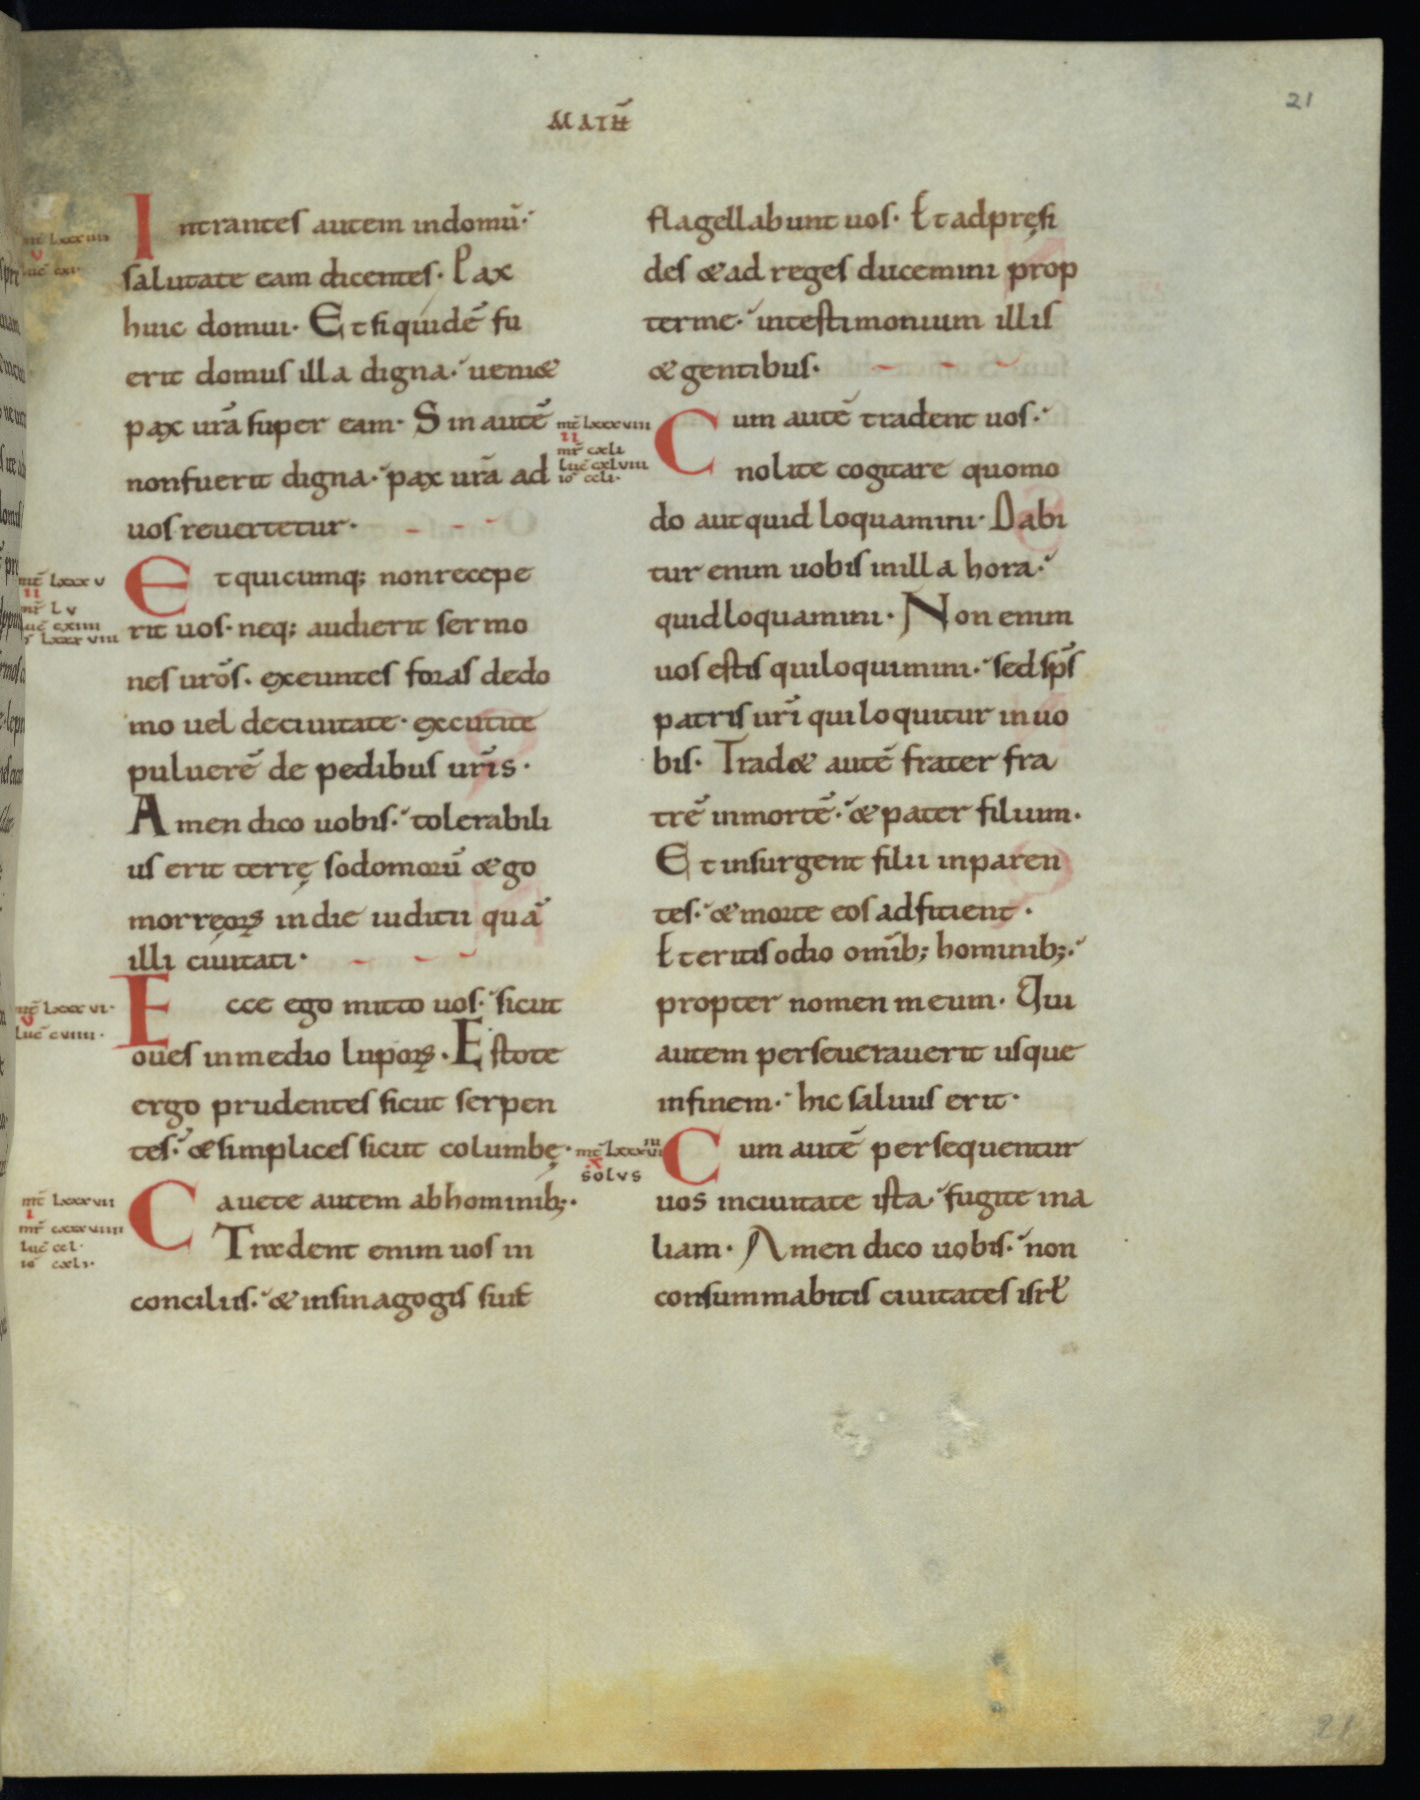 21
MATH̄
mt̄ lxxxiiii
v
luc̄ cxi·
Intrantes autem in domū·
salutate eam dicentes· Pax
huic domui· Et si quidē fu
erit domus illa digna· ueniet
pax ur̄a super eam· Sin autē
non fuerit digna· pax ur̄a ad
uos reuertetur·
mt̄ lxxxv
ii
mr̄ lv
luc̄ cxiiii
lxxxviii
Et quicumq; non recepe
rit uos· neq; audierit sermo
nes ur̄os· exeuntes foras dedo
mo uel deciuitate· excutite
puluerē de pedibus ur̄is·
Amen dico uobis· tolerabili
us erit terrę sodomorū & go
morreoꝝ in die iudicii quā
illi ciuitati·
mt̄ lxxxvi·
v
luc̄ cviiii·
Ecce ego mitto uos· sicut
oues in medio lupoꝝ· Estote
ergo prudentes sicut serpen
tes· & simplices sicut columbę·
mt̄ lxxxvii
i
mr̄ cxxxviiii
luc̄ ccl·
io cxli·
Cauete autem ab hominib;·
Tradent enim uos in
conciliis· & in sinagogis suis
flagellabunt uos· Et ad pręsi
des & ad reges ducemini prop
ter me· in testimonium illis
& gentibus·
mt̄ lxxxviii
ii
mr̄ cxli
luc̄ cxlviii
io ccli·
Cum autē tradent uos·
nolite cogitare quomo
do aut quid loquamini· Dabi
tur enim uobis in illa hora·
quid loquamini· Non enim
uos estis qui loquimini· sed sp̄s
patris ur̄i qui loquitur in uo
bis· Tradet autē frater fra
trē in mortē· & pater filium·
Et insurgent filii in paren
tes· & morte eos adficient·
Et eritis odio omīb; hominib;·
propter nomen meum· Qui
autem perseuerauerit usque
in finem· hic saluus erit·
mt̄ lxxxviiii
x
solvs
Cum autē persequentur
uos in ciuitate ista· fugite in a
liam· Amen dico uobis· non
consummabitis ciuitates isrł
21